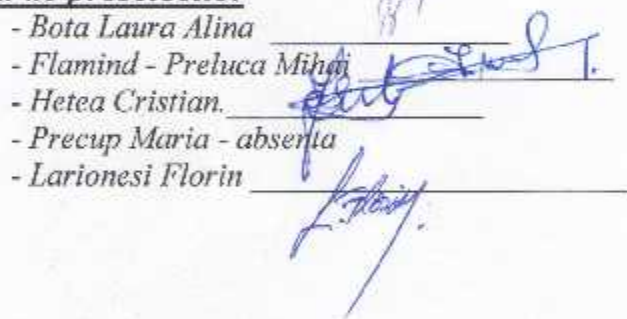 - Bota Laura Alina
- Flamind - Preluca Mihai
- Hetea Cristian.
- Precup Maria - absenta
- Larionesi Florin